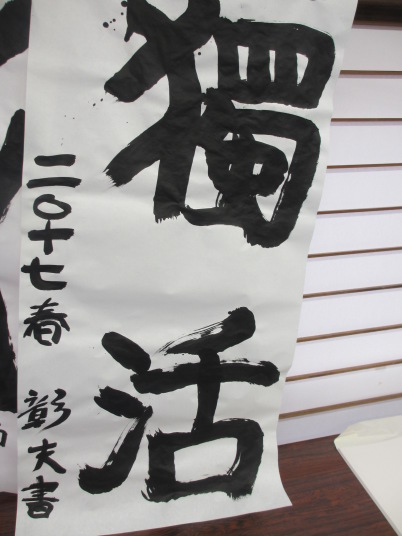 獨活
二〇十七春 彰夫書